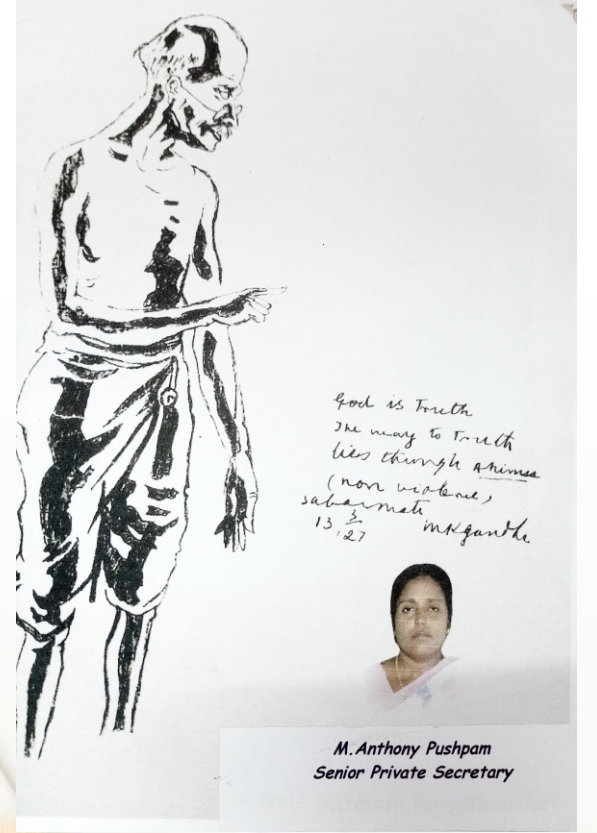 God is Truth
The way to Truth
lies through ahimsa
(non violence)
Sabarmati
13 3 '27 mkgandhi
M. Anthony Pushpam
Senior Private Secretary